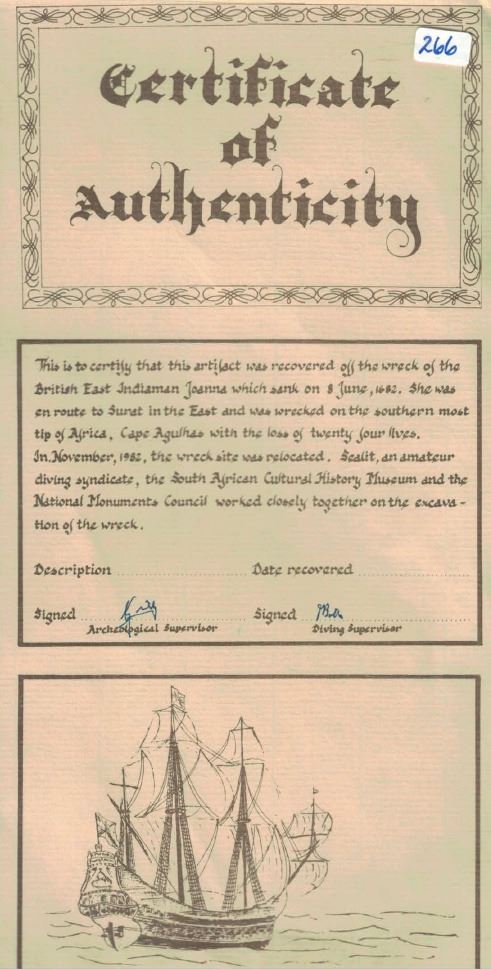 266
Certificate
of
Authenticity
This is to certify that this artifact was recovered off the wreck of the
British East Indiaman Joanna which sank on 8 June, 1682. She was
en route to Surat in the East and was wrecked on the southern most
tip of Africa, Cape Agulhas with the loss of twenty four lives.
In November, 1982, the wreck site was relocated. Sealit, an amateur
diving syndicate, the South African Cultural History Museum and the
National Monuments Council worked closely together on the excava-
tion of the wreck.
Description .................... Date recovered ....................
Signed .................... Signed ....................
Archeological Supervisor Diving Supervisor